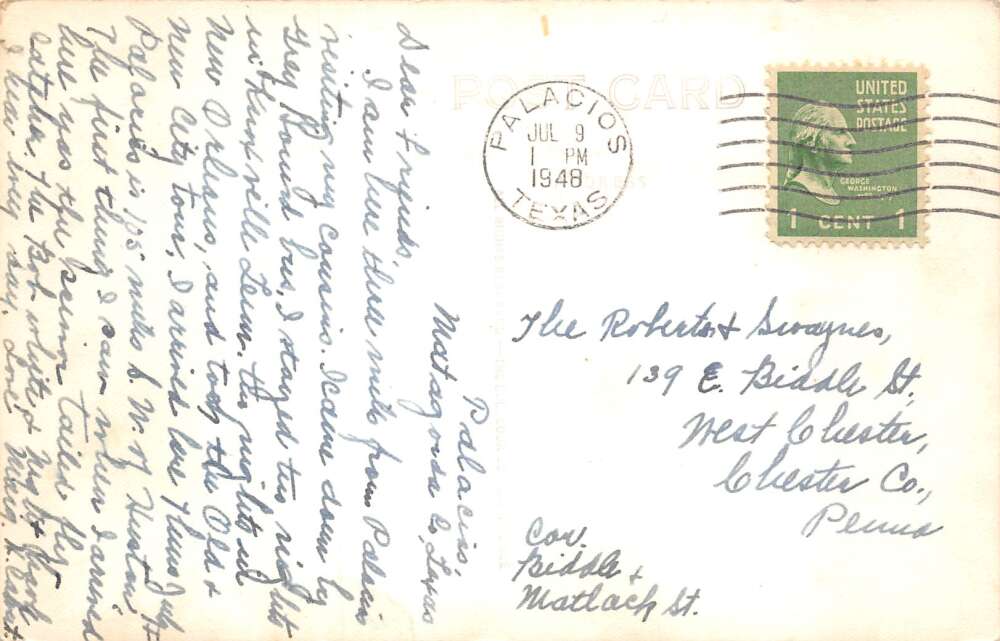 Palacios,
Matagorda Co, Texas
Dear Friends,
I am here three miles from Palacios
visiting my cousins. I came down by
Grey Hound bus, I stayed two nights
in Huntsville Tenn. two nights in
New Orleans, and took the Old &
New City tour, I arrived here Thurs July 1st
Palacios is 105 miles S. W. of Houston
The first thing I saw when I arrived
here was the scissor tailed fly
catcher. The Bob white & Night Hawk
I hear every day, Love
POST CARD
PALACIOS
JUL 9
1 PM
1948
TEXAS
UNITED
STATES
POSTAGE
GEORGE
WASHINGTON
1 CENT 1
The Roberts & Swaynes,
139 E. Biddle St,
West Chester,
Chester Co.,
Penna
Cor.
Biddle &
Matlack St.